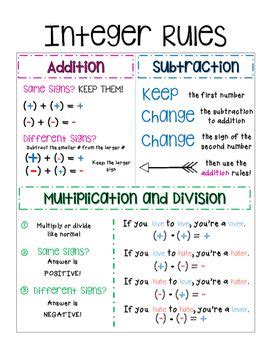 Integer Rules
Addition
Same Signs? KEEP THEM!
(+) + (+) = +
(-) + (-) = -
Different Signs?
Subtract the smaller # from the larger #
(+) + (-) = +
(-) + (+) = -
Keep the larger
sign
Subtraction
Keep the first number
Change the subtraction
to addition
Change the sign of the
second number
then use the
addition rules!
Multiplication and Division
① Multiply or divide
like normal
② Same Signs?
Answer is
POSITIVE!
③ Different Signs?
Answer is
NEGATIVE!
If you love to love, you're a lover.
(+) • (+) = +
If you love to hate, you're a hater.
(+) • (-) = -
If you hate to love, you're a hater.
(-) • (+) = -
If you hate to hate, you're a lover.
(-) • (-) = +